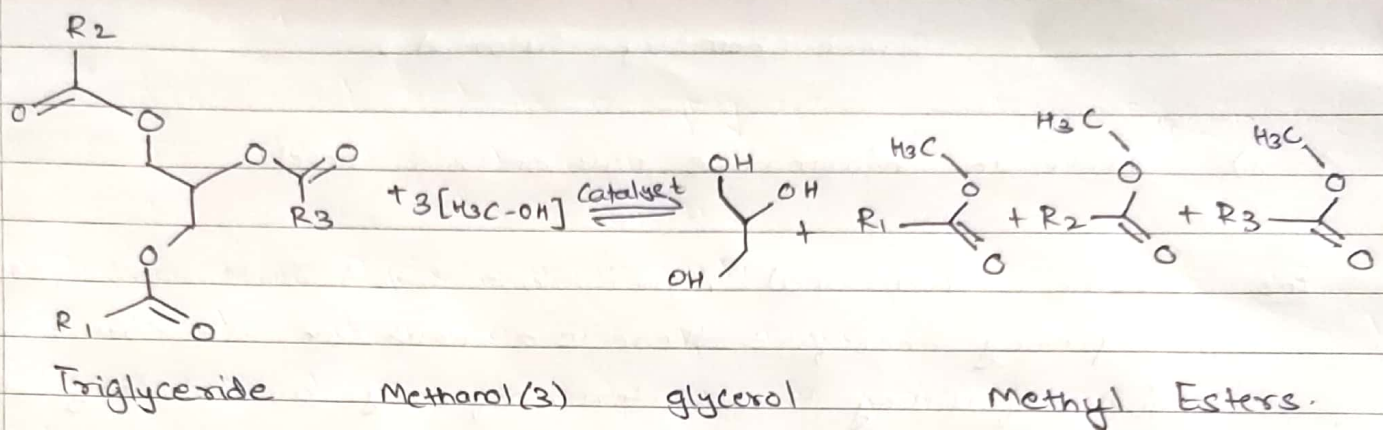 R2
O O
O O
R3
+ 3 [H3C-OH] Catalyst
OH
OH
OH
+ R1 H3C O O
+ R2 H3C O O
+ R3 H3C O O
O
R1 O
Triglyceride Methanol (3) glycerol Methyl Esters.